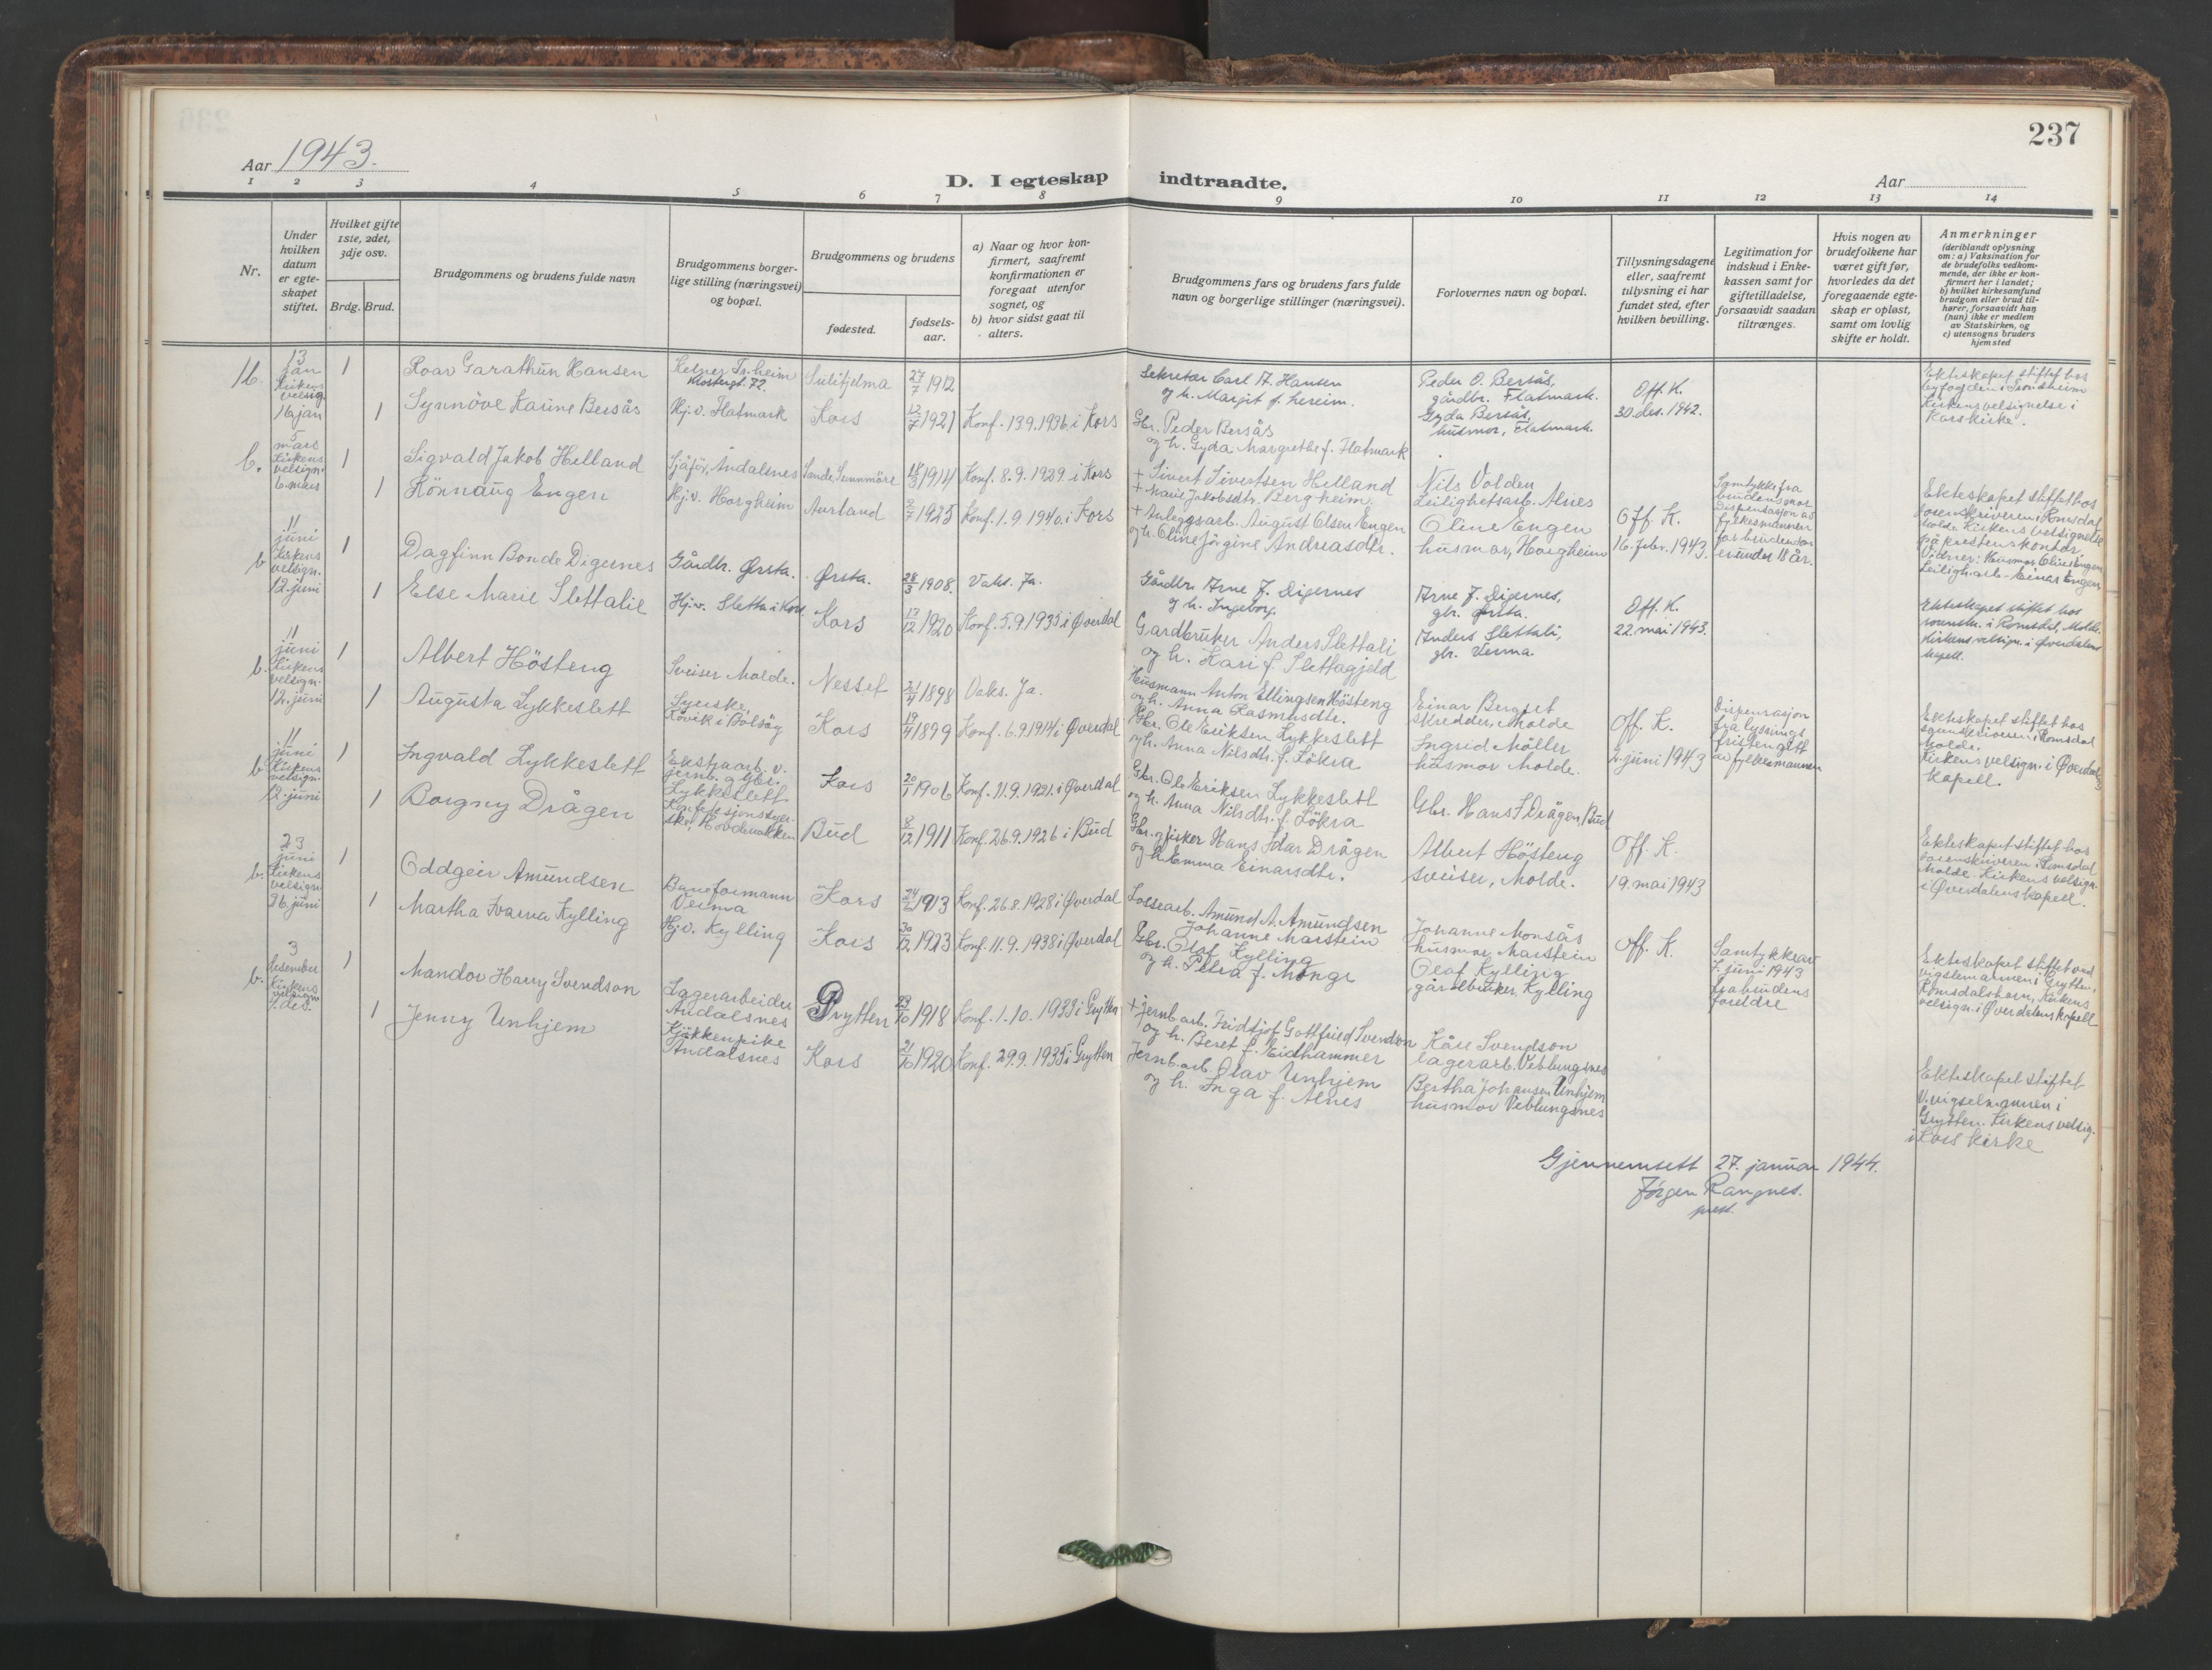 237
Aar 1943.
D. I egteskap indtraadte.
Aar
1 2 3 4 5 6 7 8 9 10 11 12 13 14
Nr.
Under hvilken datum er egteskapet stiftet.
Hvilket gifte 1ste, 2det, 3dje osv.
Brdg. Brud.
Brudgommens og brudens fulde navn
Brudgommens borgerlige stilling (næringsvei) og bopæl.
Brudgommens og brudens
fødested.
fødselsaar.
a) Naar og hvor konfirmert, saafremt konfirmationen er foregaat utenfor sognet, og
b) hvor sidst gaat til alters.
Brudgommens fars og brudens fars fulde navn og borgerlige stillinger (næringsvei).
Forlovernes navn og bopæl.
Tillysningsdagene eller, saafremt tillysning ei har fundet sted, efter hvilken bevilling.
Legitimation for indskud i Enkekassen samt for giftetilladelse, forsaavidt saadan tiltrænges.
Hvis nogen av brudefolkene har været gift før, hvorledes da det foregaaende egteskap er opløst, samt om lovlig skifte er holdt.
Anmerkninger
(deriblandt oplysning om: a) Vaksination for de brudefolks vedkommende, der ikke er konfirmert her i landet; b) hvilket kirkesamfund brudgom eller brud tilhører, forsaavidt han (hun) ikke er medlem av Statskirken, og c) utensogns bruders hjemsted
1b.
13 jan
Kirkens velsig.
16 jan
1
Roar Garathun Hansen
Kelner Tr.heim
Klostergt. 72.
Sulitjelma
27/7 1912
Sekretær Carl A. Hansen
og h. Margit f. Lereim.
Peder O. Bersås,
gårdbr. Flatmark.
Off. K.
30 des. 1942.
Ekteskapet stiftet hos
byfogden i Trondheim
Kirkens velsignelse i
Kors kirke.
1
Synnöve Karine Bersås
Hj.v. Flatmark
Kors
1921
Konf. 13.9.1936 i Kors
Gbr. Peder Bersås
og h. Gyda Margrethe f. Flatmark
Gyda Bersås,
husmor, Flatmark.
b.
5 mars
Kirkens velsign.
6. mars
1
Sigvald Jakob Helland
Sjåfør, Åndalsnes
Sande, Sunnmöre
1914
Konf. 8.9.1929. i Kors
+ Sivert Sivertsen Helland
+ Marie Jakobsdtr. Bergheim
Nils Volden
Leilighetsarb. Alnes
Off. K.
16. febr. 1943.
Samtykke fra
brudens mor
Dispensasjon av
fylkesmannen
for bruden
er under 18 år.
Ekteskapet stiftet hos
sorenskriveren i Romsdal,
Molde. Kirkens velsignelse
på prestens kontor.
Vidner: Husmor Oline Engen
Leiligh.arb. Einar Engen
1
Rönnaug Engen
Hj.v. Horgheim
Aurland
1925
Konf. 1.9.1940. i Kors
+ Anleggsarb. August Olsen Engen
og h. Oline Jörgine Andreasdtr.
Oline Engen
husmor, Horgheim
b
11 juni
Kirkens velsign.
12. juni
1
Dagfinn Bonde Digernes
Gårdbr. Ørsta.
Ørsta.
28/3 1908.
Vaks. Ja.
Gårdbr. Arne J. Digernes
og h. Ingeborg.
Arne J. Digernes,
gbr. Ørsta.
Off. K.
22. mai 1943.
Ekteskapet stiftet hos
sorenskr. i Romsdal, Molde.
Kirkens velsign. i Øverdalens
kapell.
1
Else Marie Slettalie
Hj.v. Sletta i Kors
Kors
13/12 1920
Konf. 5.9.1935 i Øverdal
Gardbruker Anders Slettali
og h. Kari f. Slettagjeld
Anders Slettali,
gbr. Verma.
b.
11 juni
Kirkens velsign.
12. juni
1
Albert Hösteng
Sveiser Molde.
Nesset
21/4 1898
Vaks. Ja.
Husmann Anton Ellingsen Hösteng
og h. Anna Rasmusdtr.
Einar Bergset
skredder, Molde
Off. K.
2. juni 1943
Dispensasjon
fra lysnings
fristen gitt
av fylkesmannen
Ekteskapet stiftet hos
sorenskriveren i Romsdal
Molde.
Kirkens velsign. i Øverdalens
kapell.
1
Augusta Lykkeslett
Syerske,
Røvik i Bolsöy
Kors
19/4 1899
Konf. 6.9.1914 i Øverdal
Gbr. Ole Eriksen Lykkeslett
og h. Anna Nilsdtr. f. Lökra
Ingrid Möller
husmor Molde.
b.
11 juni
Kirkens velsign.
12. juni
1
Ingvald Lykkeslett
Ekstraarb. v.
jernb. og gbr.
Lykkeslett
Kors
20/1 1906
Konf. 11.9.1921. i Øverdal
Gbr. Ole Eriksen Lykkeslett
og h. Anna Nilsdtr. f. Lökra
Gbr. Hans I Drågen, Bud
Off. K.
19. mai 1943
Ekteskapet stiftet hos
sorenskriveren i Romsdal
Molde. Kirkens velsign.
i Øverdalens kapell.
1
Borgny Drågen
Bud
8/12 1911
Konf. 26.9.1926 i Bud
Gbr. og fisker Hans Idar Drågen
og h. Emma Einarsdtr.
Albert Hösteng
sveiser, Molde.
b.
23 juni
Kirkens velsign.
26. juni
1
Oddgeir Amundsen
Baneformann
Verma
Kors
1913
Konf. 26.8.1928 i Øverdal
Losearb. Amund A. Amundsen
Johanne Marstein
Johanne Monsås
husmor, Marstein
Off. K.
Samtykke av
7. juni 1943
fra brudens
foreldre
Ekteskapet stiftet ved
vigslemannen i Grytten,
Romsdalshorn, Kirkens
velsign. i Øverdalens kapell
1
Martha Ivarna Kylling
Hj.v. Kylling
Kors
30/12 1923
Konf. 11.9.1938 i Øverdal
Gbr. Olaf Kylling
og h. Petra f. Monge
Olaf Kylling
gårdbruker, Kylling
b.
3 desember
Kirkens velsign.
1
Mandor Harry Svendson
Lagerarbeider
Åndalsnes
Grytten
23/10 1918
Konf. 1.10.1933 i Grytten
+ Jernb.arb. Fridtjof Gottfried Svendson
og h. Beret f. Eidhammer
Kåre Svendson
lagerarb. Veblungsnes
Ekteskapet stiftet
v. vigselmannen i
Grytten. Kirkens velsig.
i Kors kirke
1
Jenny Unhjem
Kjökkenpike
Åndalsnes
Kors
21/10 1920
Konf. 29.9.1935 i Grytten
Jernb.arb. Olav Unhjem
og h. Inga f. Alnes
Bertha Johansen Unhjem
husmor Veblungsnes
Gjennemsett 27. januar 1944.
Jörgen Rangnes.
prest.